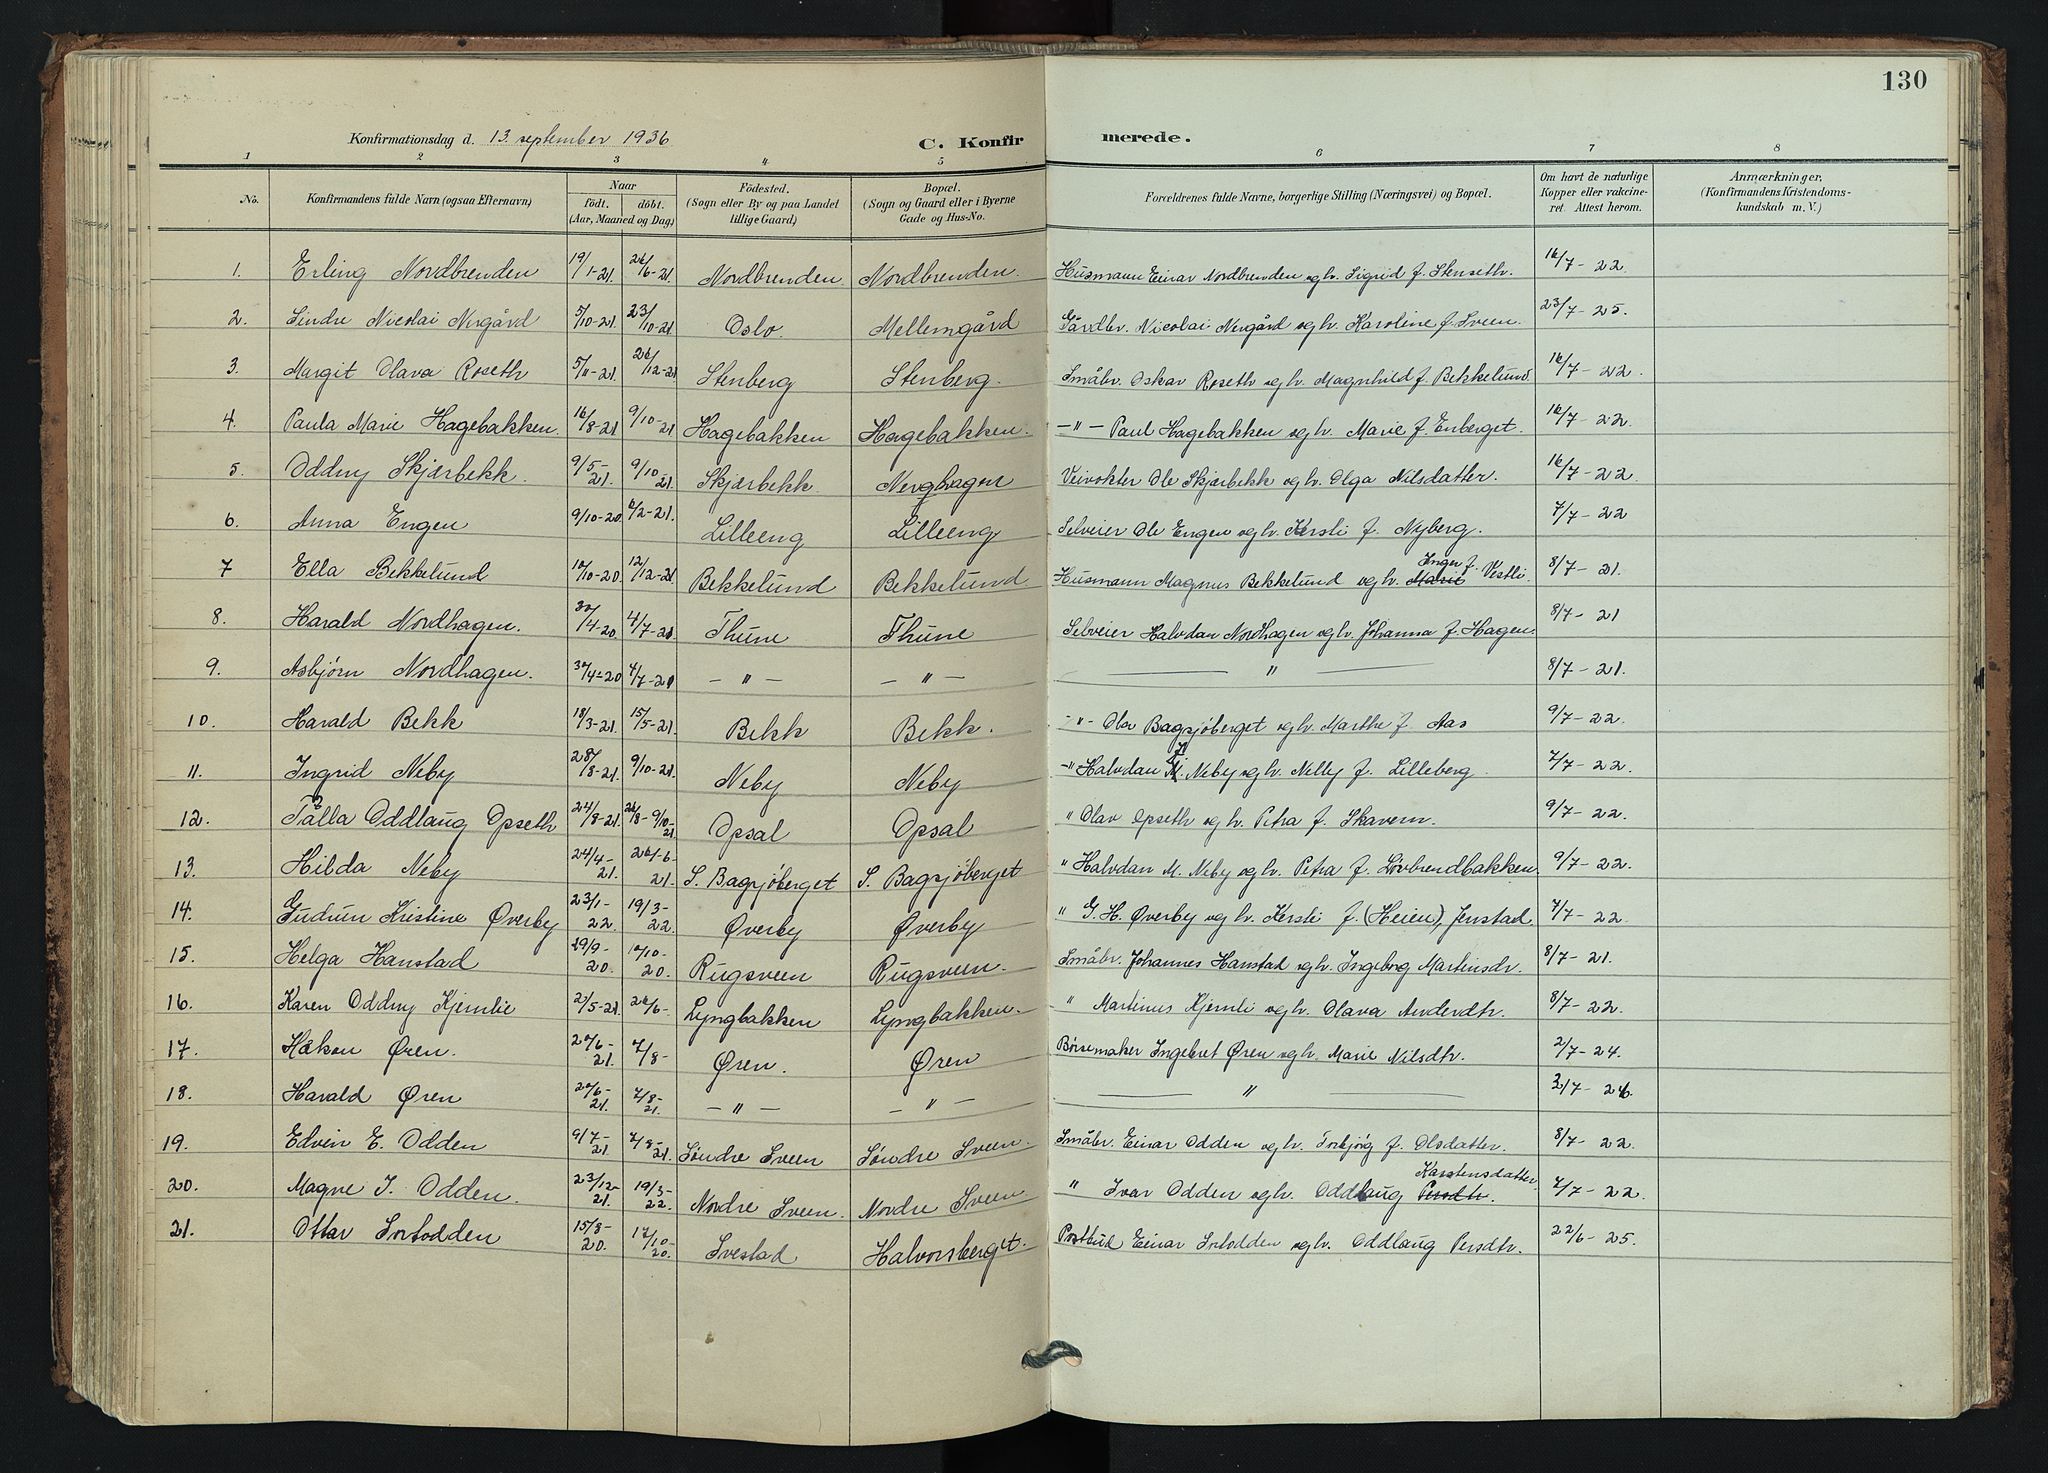 130
Konfirmationsdag d. 13. september 1936 C. Konfirmerede.
1 2 3 4 5 6 7 8
No. Konfirmandens fulde Navn (ogsaa Efternavn) Naar födt. döbt. (Aar, Maaned og Dag) Födested. (Sogn eller By og paa Landet tillige Gaard) Bopæl. (Sogn og Gaard eller i Byerne Gade og Hus-No. Forældrenes fulde Navne, borgerlige Stilling (Næringsvei) og Bopæl. Om havt de naturlige Kopper eller vakcineret. Attest herom. Anmærkninger. (Konfirmandens Kristendomskundskab m. V.)
1. Erling Nordbrenden 19/1-21. 26/6-21 Nordbrenden Nordbrenden. Husmann Einar Nordbrenden og h. Sigrid f. Stenseth. 16/7-22.
2. Sindre Nicolai Nergård 5/10-21. 23/10-21 Oslo Mellemgård Gårdbr. Nicolai Nergård og h. Karoline f. Sveen. 23/7-25.
3. Margit Olava Roseth 5/11-21. 26/12-21 Stenberg Stenberg. Småbr. Oskar Roseth og h. Magnhild f. Bekkelund. 16/7-22.
4. Paula Marie Hagebakken. 16/8-21 9/10-21 Hagebakken Hagebakken. -"- Paul Hagebakken og h. Marie f. Enberget. 16/7-22.
5. Oddny Skjærbekk. 9/5-21. 9/10-21. Skjærbekk Nerghagen Veivokter Ole Skjærbekk og h. Olga Nilsdatter. 16/7-22
6. Anna Engen 9/10-20. 6/2-21. Lilleeng Lilleeng Selveier Ole Engen og h. Kersti f. Nyberg. 7/7-22
7 Ella Bekkelund 10/10-20. 12/12-21. Bekkelund Bekkelund Husmann Magnus Bekkelund og h. Marie Inger f. Vestli. 8/7-21.
8. Harald Nordhagen. 30/4-20 4/7-20 Thune Thune Selveier Halvdan Nordhagen og h. Johanna f. Hagen. 8/7-21
9. Asbjørn Nordhagen. 30/4-20 4/7-20 -"- -"- " 8/7-21.
10. Harald Bekk 18/3-21. 15/5-21. Bekk Bekk. -"- Olav Bagsjøberget og h. Marthe f. Aas 9/7-22.
11. Ingrid Neby 28/8-21. 9/10-21. Neby Neby -"- Halvdan Neby og h. Nelly f. Lilleberg. 7/7-22.
12. Tålla Oddlaug Opseth 24/8-21. 9/10-21. Opsal Opsal " Olav Opseth og h. Petra f. Skavern. 9/7-22.
13. Hilda Neby 24/4-21. 26/6-21. S. Bagsjøberget S. Bagsjøberget " Halvdan M. Neby og h. Petra f. Løvbrendbakken. 9/7-22.
14. Gudrun Kristine Øverby 23/1-22. 19/3-22. Øverby Øverby " G. H. Øverby og h. Kersti f. (Heien), Jenstad. 7/7-22
15. Helga Hanstad 29/9-20. 10/10-20. Rugsveen Rugsveen. Småbr. Johannes Hanstad og h. Ingeborg Martinsdr. 8/7-21.
16. Karen Oddny Kjemlie 2/5-21 26/6- Lyngbakken Lyngbakken. " Martinus Kjemli og h. Olava Anderdtr. 8/7-22.
17. Håkon Øren. 20/6-21. 7/8- Øren. Øren Børsemaker Ingebret Øren og h. Marie Nilsdtr. 2/7-24.
18. Harald Øren 20/6-21. 7/8-21. -"- -"- " 2/7-26.
19. Edvin E. Odden 9/7-21. 7/8-21. Søndre Sveen Søndre Sveen. Småbr. Einar Odden og h. Torbjørg f. Olsdatter. 8/7-22.
20. Magne I. Odden. 23/12-21. 19/3-22 Nordre Sveen. Nordre Sveen. " Ivar Odden og h. Oddlaug Persdtr. Karstensdatter. 7/7-22.
21. Ottar Sorfodden 15/8-20. 17/10-20. Svestad Halvorsberget. Postbud Einar Sorfodden og h. Oddlaug Persdtr. 22/6-25.